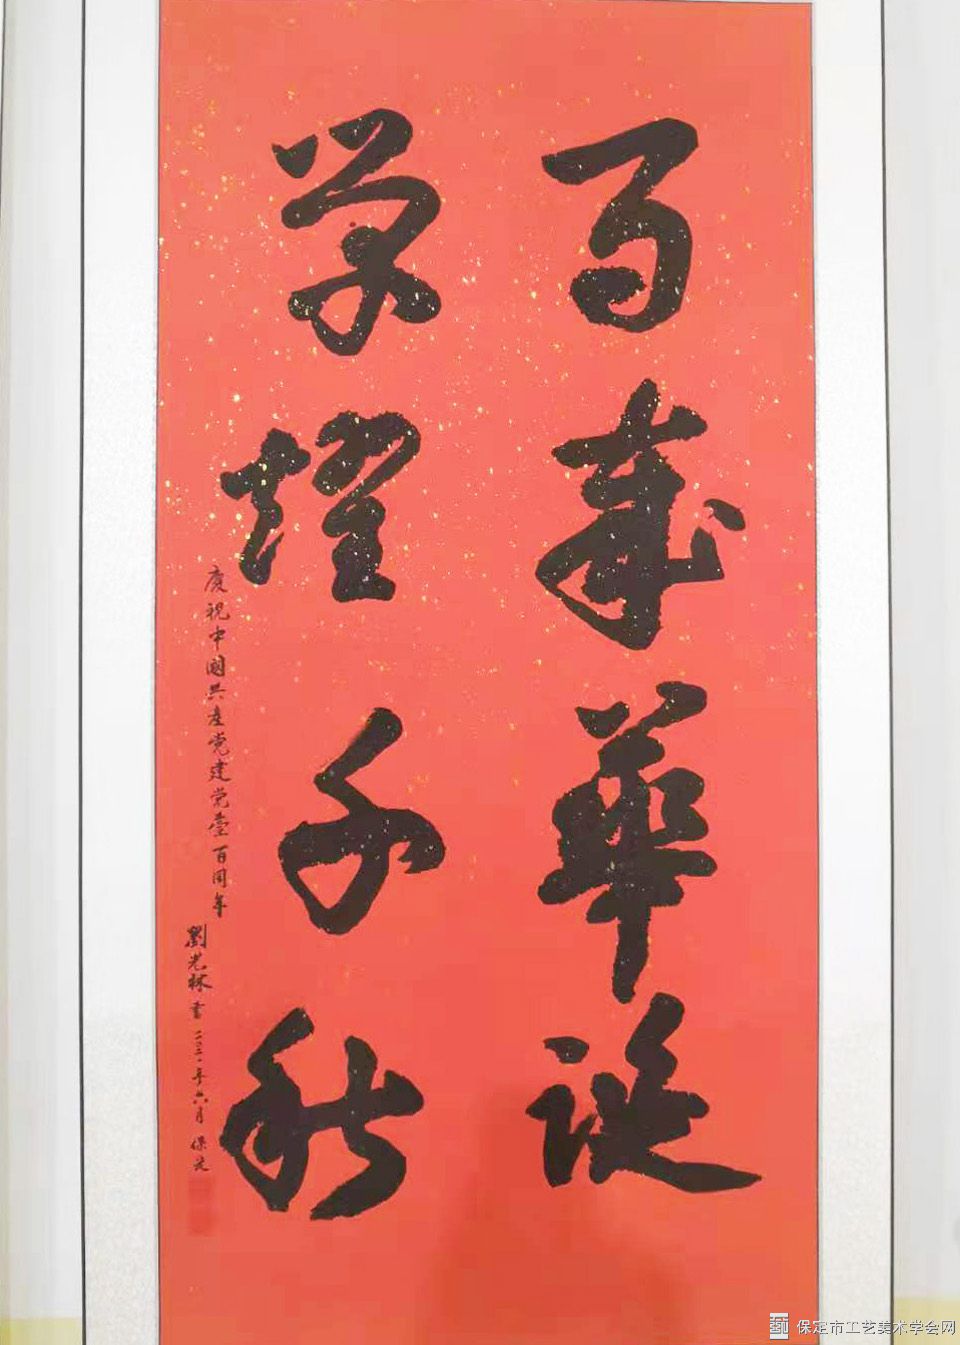 百歲華誕
榮耀千秋
慶祝中國共產党建党壹百周年
劉光林書 二〇二一年六月 保定
保定市工艺美术学会网